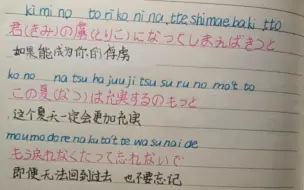 kimi no toriko ni na tte shimaeba ki tto
君(きみ)の虜(とりこ)になってしまえばきっと
如果能成为你的俘虏
ko no na tsu ha juu ji tsu su ru no mo to
この夏(なつ)は充実するのもっと
这个夏天一定会更加充实
mou mo do re na ku ta't te wa su re na i de
もう戻れなくたって忘れないで
即便无法回到过去 也不要忘记